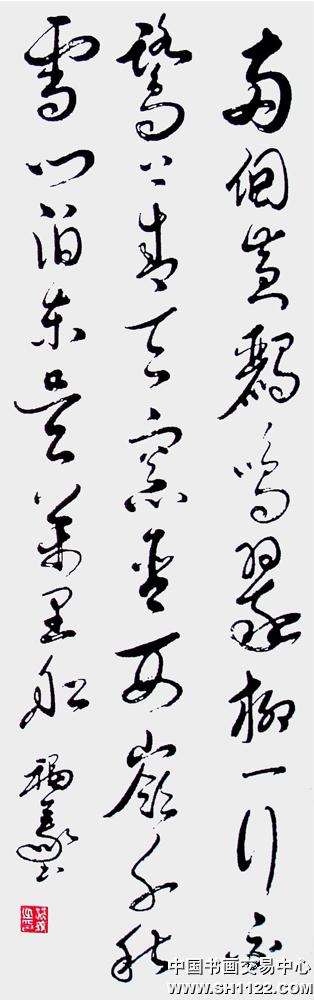 兩個黃鸝鳴翠柳一行白
鷺上青天窗含西嶺千秋
雪門泊東吳萬里船
福義书
中国书画交易中心
WWW.SH1122.COM